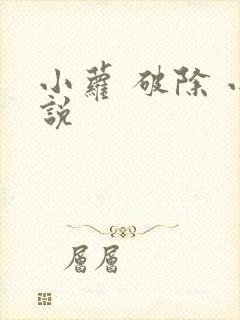 小蘿 破除 小
說
層層